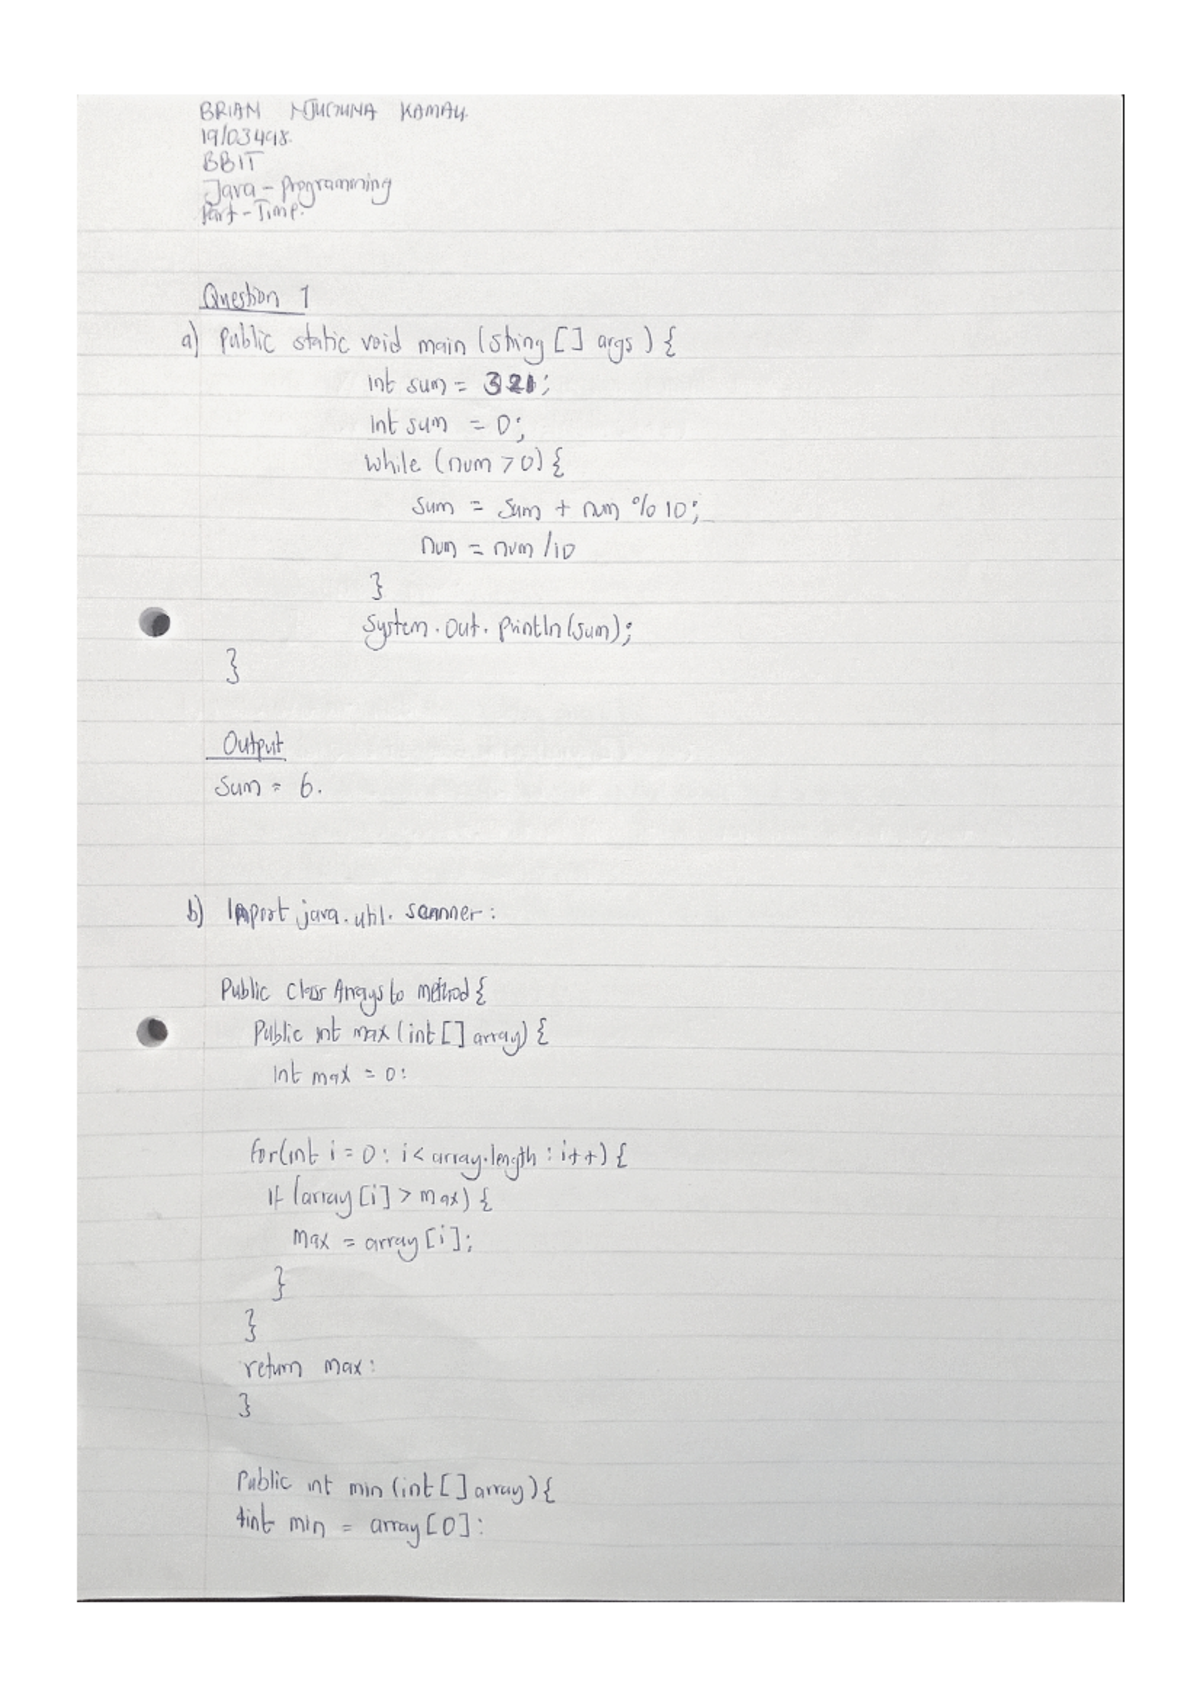 BRIAN NJUGUNA KAMAU.
19/03498.
BBIT
Java - Programming
Part - Time.
Question 1
a) Public static void main (string [] args) {
int sum = 321;
int sum = 0;
while (num > 0) {
sum = sum + num % 10;
num = num /10
}
System.out.println(sum);
}
Output
Sum = 6.
b) Import java.util.scanner:
Public class Arraysto method {
Public int max (int [] array) {
int max = 0:
for(int i = 0: i < array.length : i++) {
if (array [i] > max) {
max = array [i];
}
}
return max:
}
Public int min (int [] array) {
int min = array [0]: